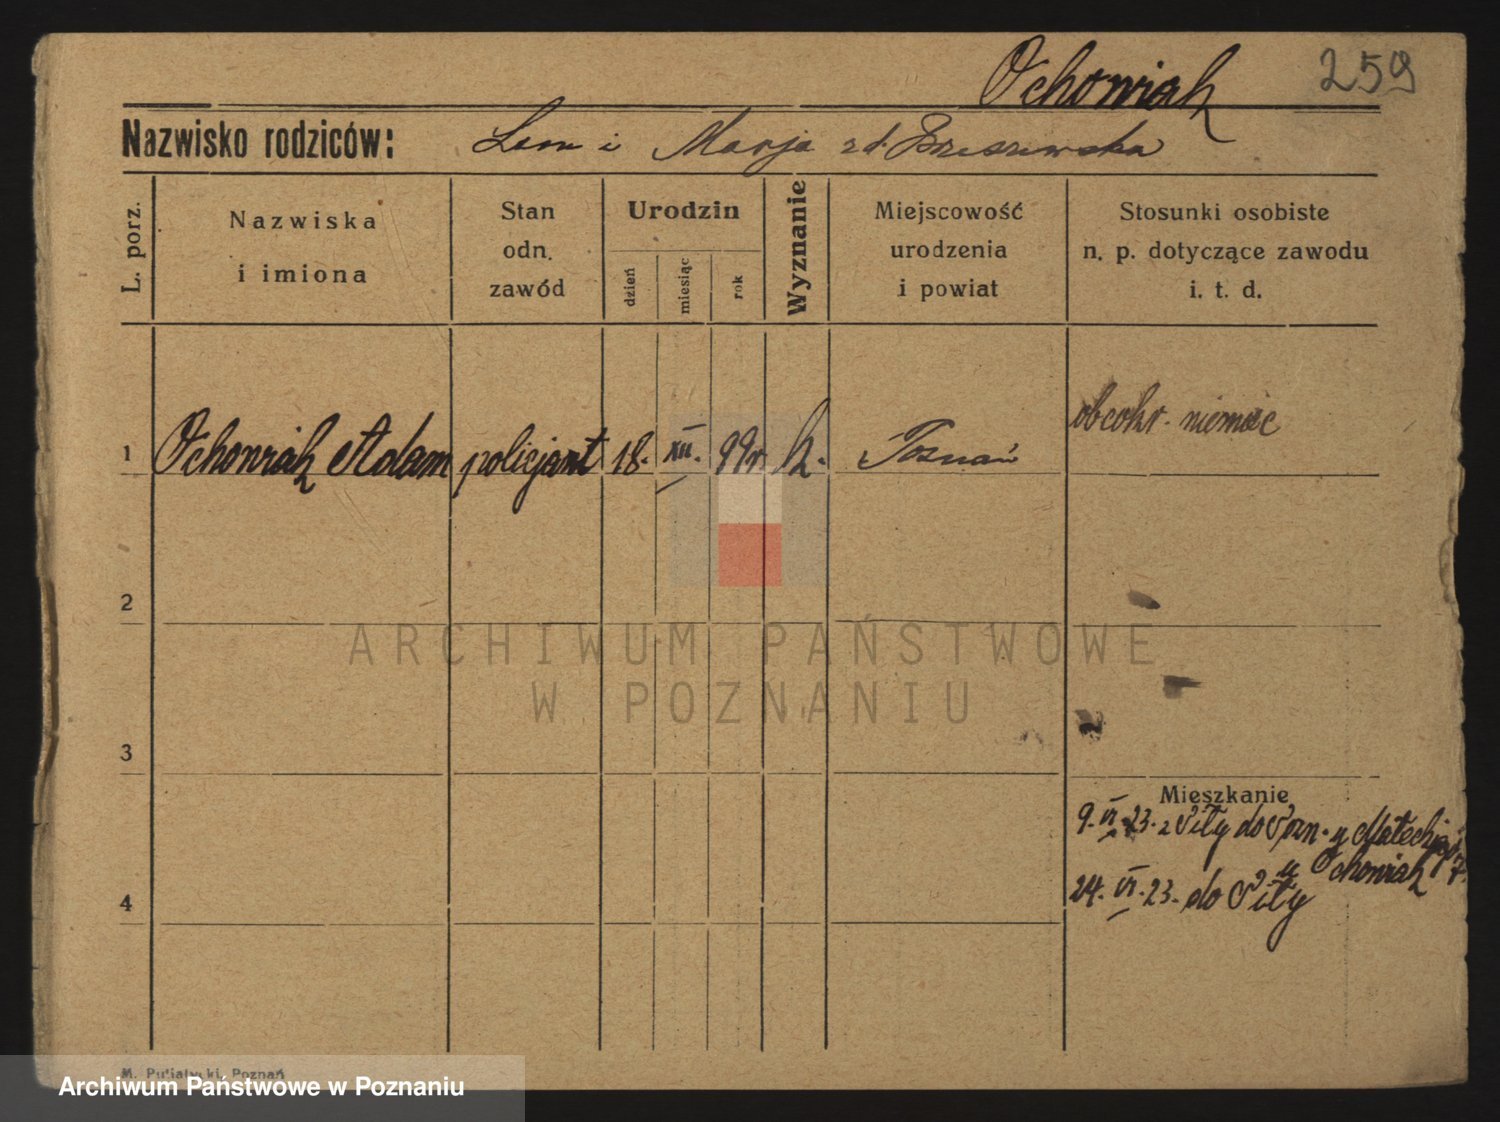 Ochowiak 259
Nazwisko rodziców: Leon i Marja zd. Brzeszewska
L. porz.
Nazwiska
i imiona
Stan
odn.
zawód
Urodzin
dzień
miesiąc
rok
Wyznanie
Miejscowość
urodzenia
i powiat
Stosunki osobiste
n. p. dotyczące zawodu
i. t. d.
1 Ochowiak Adam policjant 18. XII. 99r. k. Poznań obcokr. niemiec
2
3
4
Mieszkanie
9. VI. 23. z Piły do Pozn. u
Ochowiak
24. VI. 23. do Piły
ARCHIWUM PAŃSTWOWE
W POZNANIU
Poznań
Archiwum Państwowe w Poznaniu